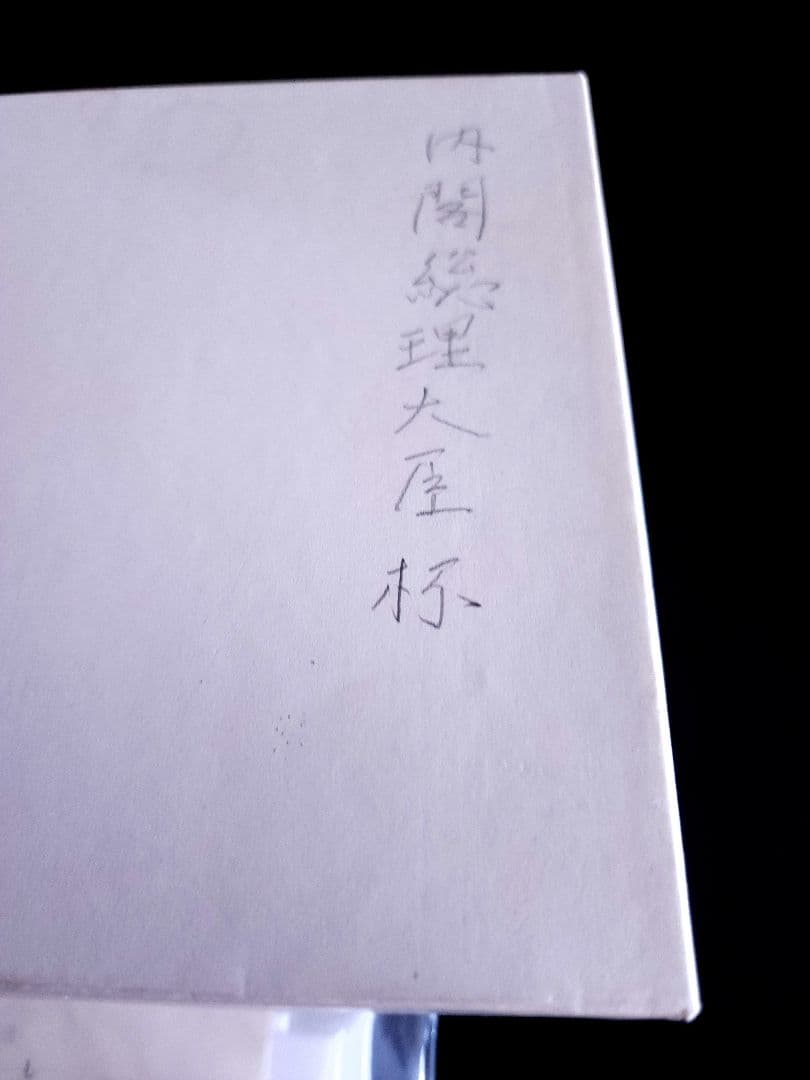 内閣総理大臣杯